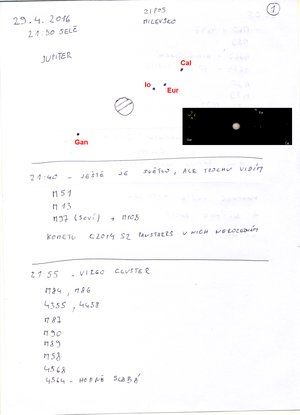 29.4.2016
21:30 SELČ
ZIPOS
MILEVSKO
1
JUPITER
Cal
Io
Eur
Gan
21:40 - JEŠTĚ JE SVĚTLO, ALE TROCHU VIDÍM
M51
M13
M97 (SOVÍ) + M108
KOMETU C2014 S2 PANSTARRS U NICH NEROZEZNÁM
21:55 - VIRGO CLUSTER
M84, M86
4355, 4438
M87
M90
M89
M58
4568
4564 - HODNĚ SLABÁ